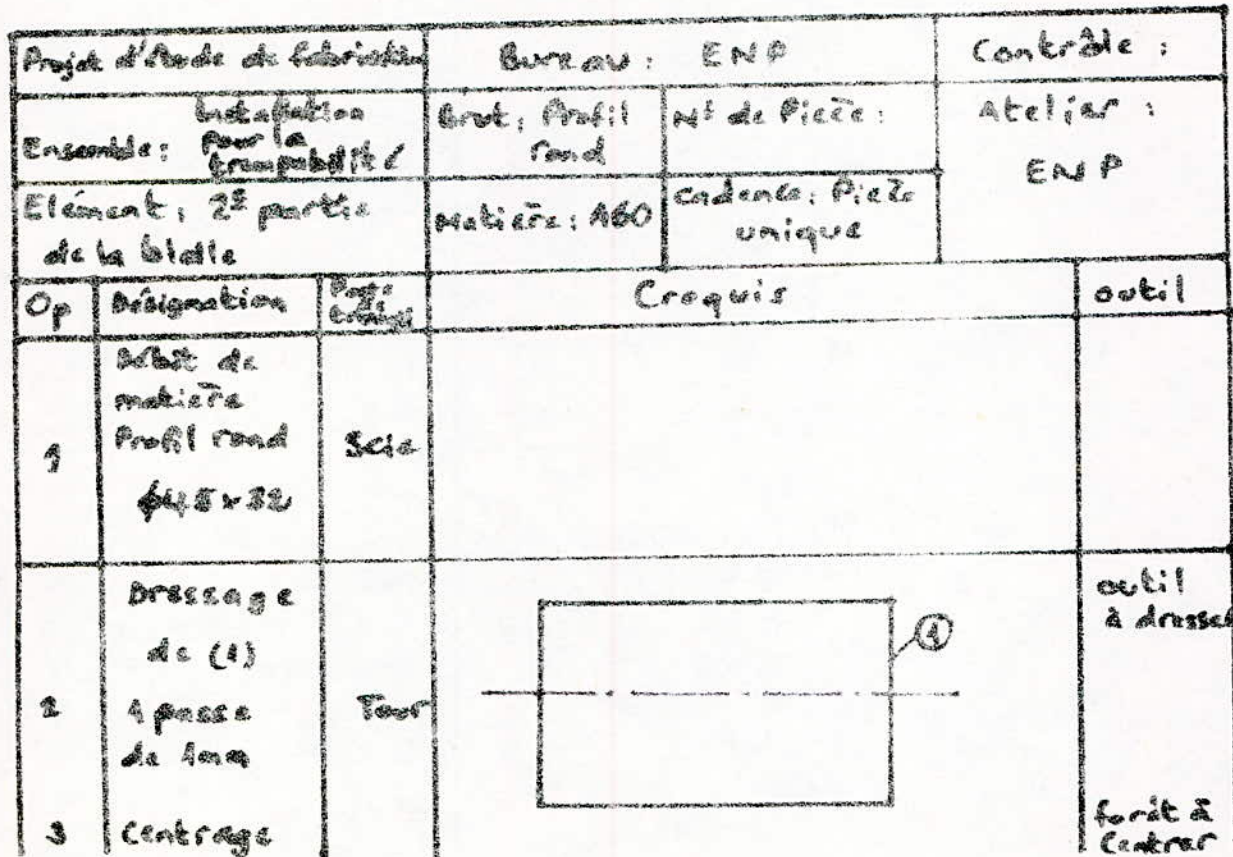 Projet d'étude de fabrication
Bureau : ENP
Contrôle :
Ensemble : Installation
pour la
trempabilité
Brut : Profil
rond
N° de Pièce :
Atelier :
ENP
Elément : 2è partie
de la bielle
Matière : A60
Cadence : Pièce
unique
Op
Désignation
Poste de
travail
Croquis
outil
1
Débit de
matière
Profil rond
φ45x32
Scie
2
Dressage
de (1)
1 passe
de 1mm
Tour
1
outil
à dresser
3
Centrage
forêt à
Centrer